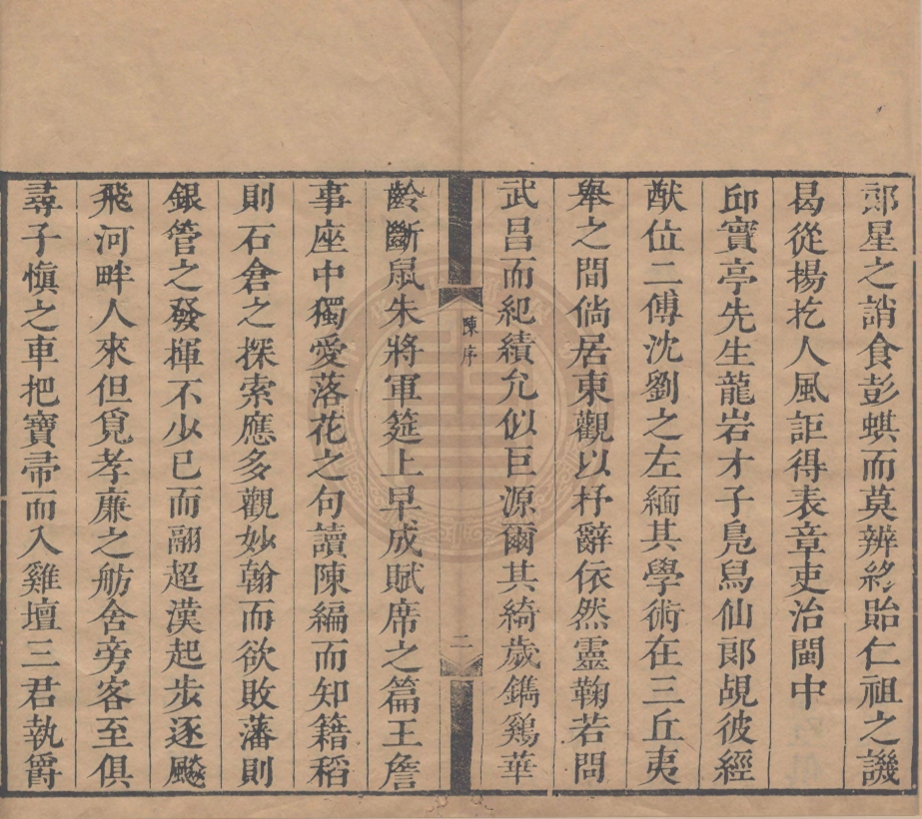 郎星之誚食彭蜞而莫辨終貽仁祖之譏
曷從揚扢人風詎得表章吏治閩中
邱實亭先生龍岩才子鳧舄仙郎覘彼經
猷位二傅沈劉之左緬其學術在三丘夷
舉之間倘居東觀以杼辭依然靈鞠若問
武昌而紀績允似巨源爾其綺歲鐫鷄華
陳序
二
齡斷鼠朱將軍筵上早成賦席之篇王詹
事座中獨愛落花之句讀陳編而知籍稻
則石倉之探索應多觀妙翰而欲敗藩則
銀管之發揮不少已而翮超漢起步逐飈
飛河畔人來但覓孝廉之舫舍旁客至俱
尋子愼之車把寶帚而入雞壇三君執爵